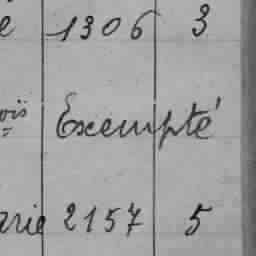 e 1306 3
ois Exempté
=
arie 2157 5